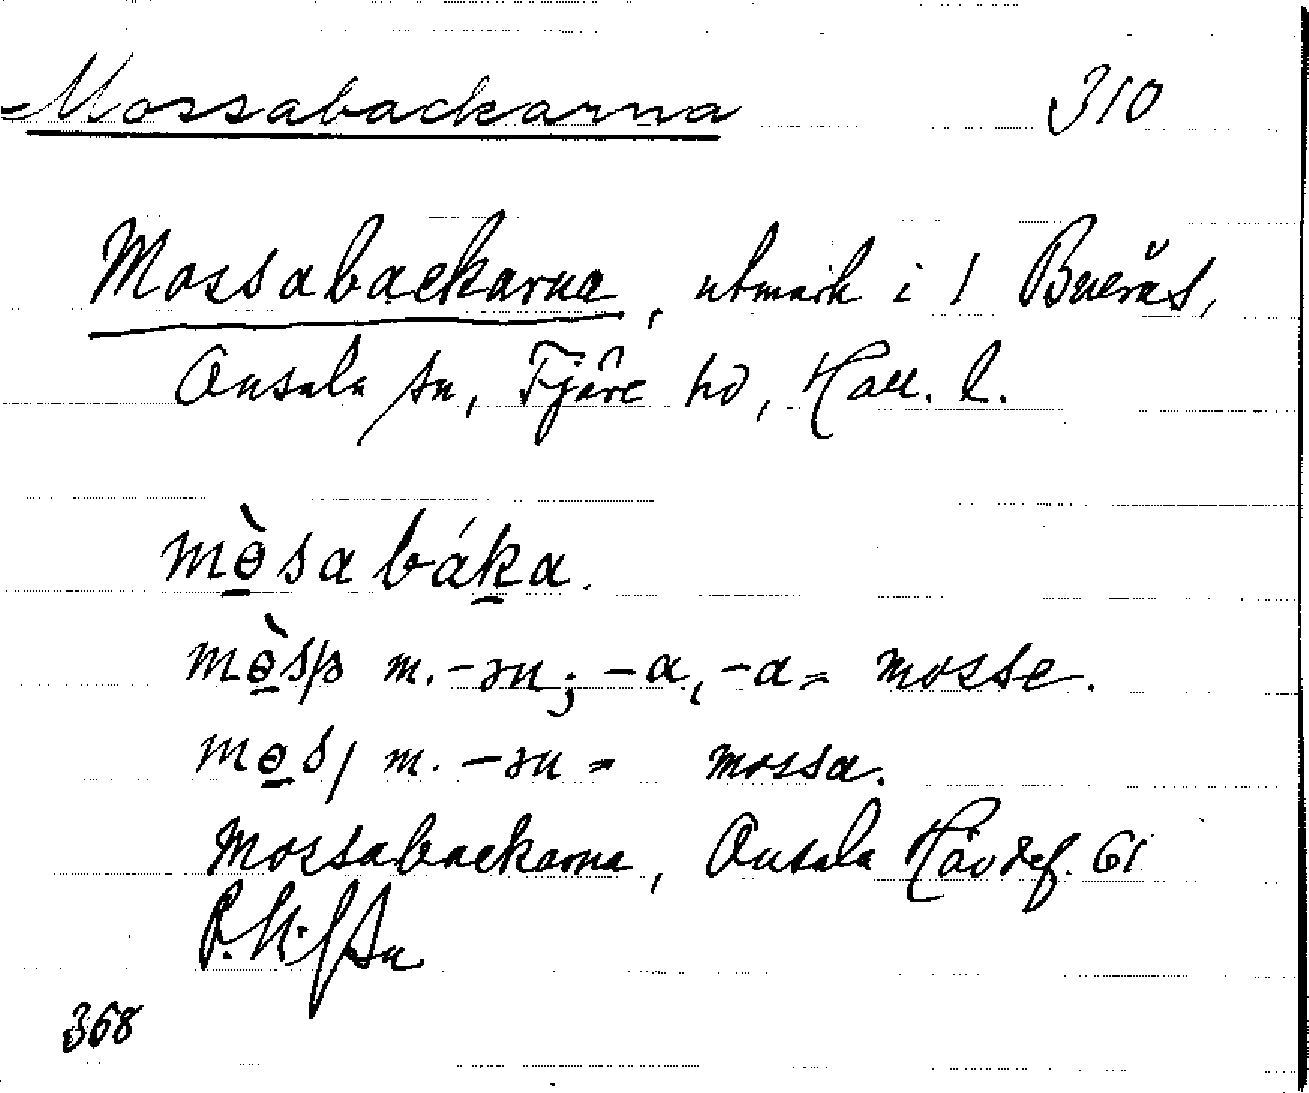 Mossabackarna 310
Mossabackarna, utmark i 1 Buerås,
Onsala sn, Fjäre hd, Hall. l.
mɵ̀sa báka.
mɵ̀sə m. -ən; -a, -a = mosse.
mɵs, m. -ən = mossa.
Mossabackarna, Onsala Hävdef. 61
368